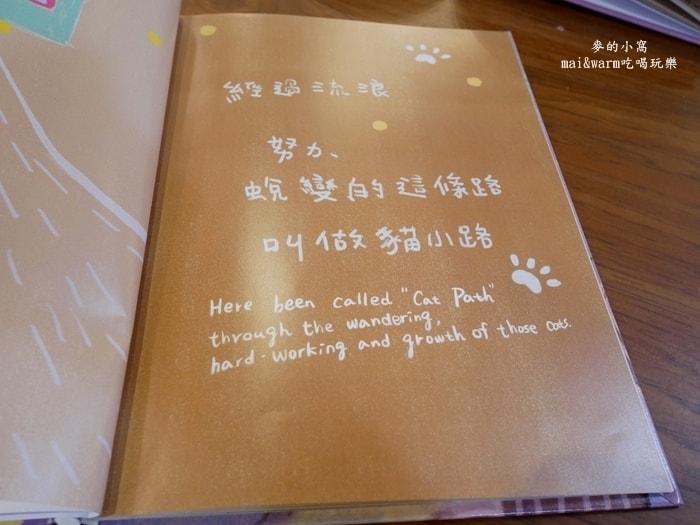 麥的小窩
mai&warm吃喝玩樂
經過流浪
努力、
蛻變的這條路
叫做貓小路
Here been called "Cat Path"
through the wandering,
hard-working and growth of those cats.